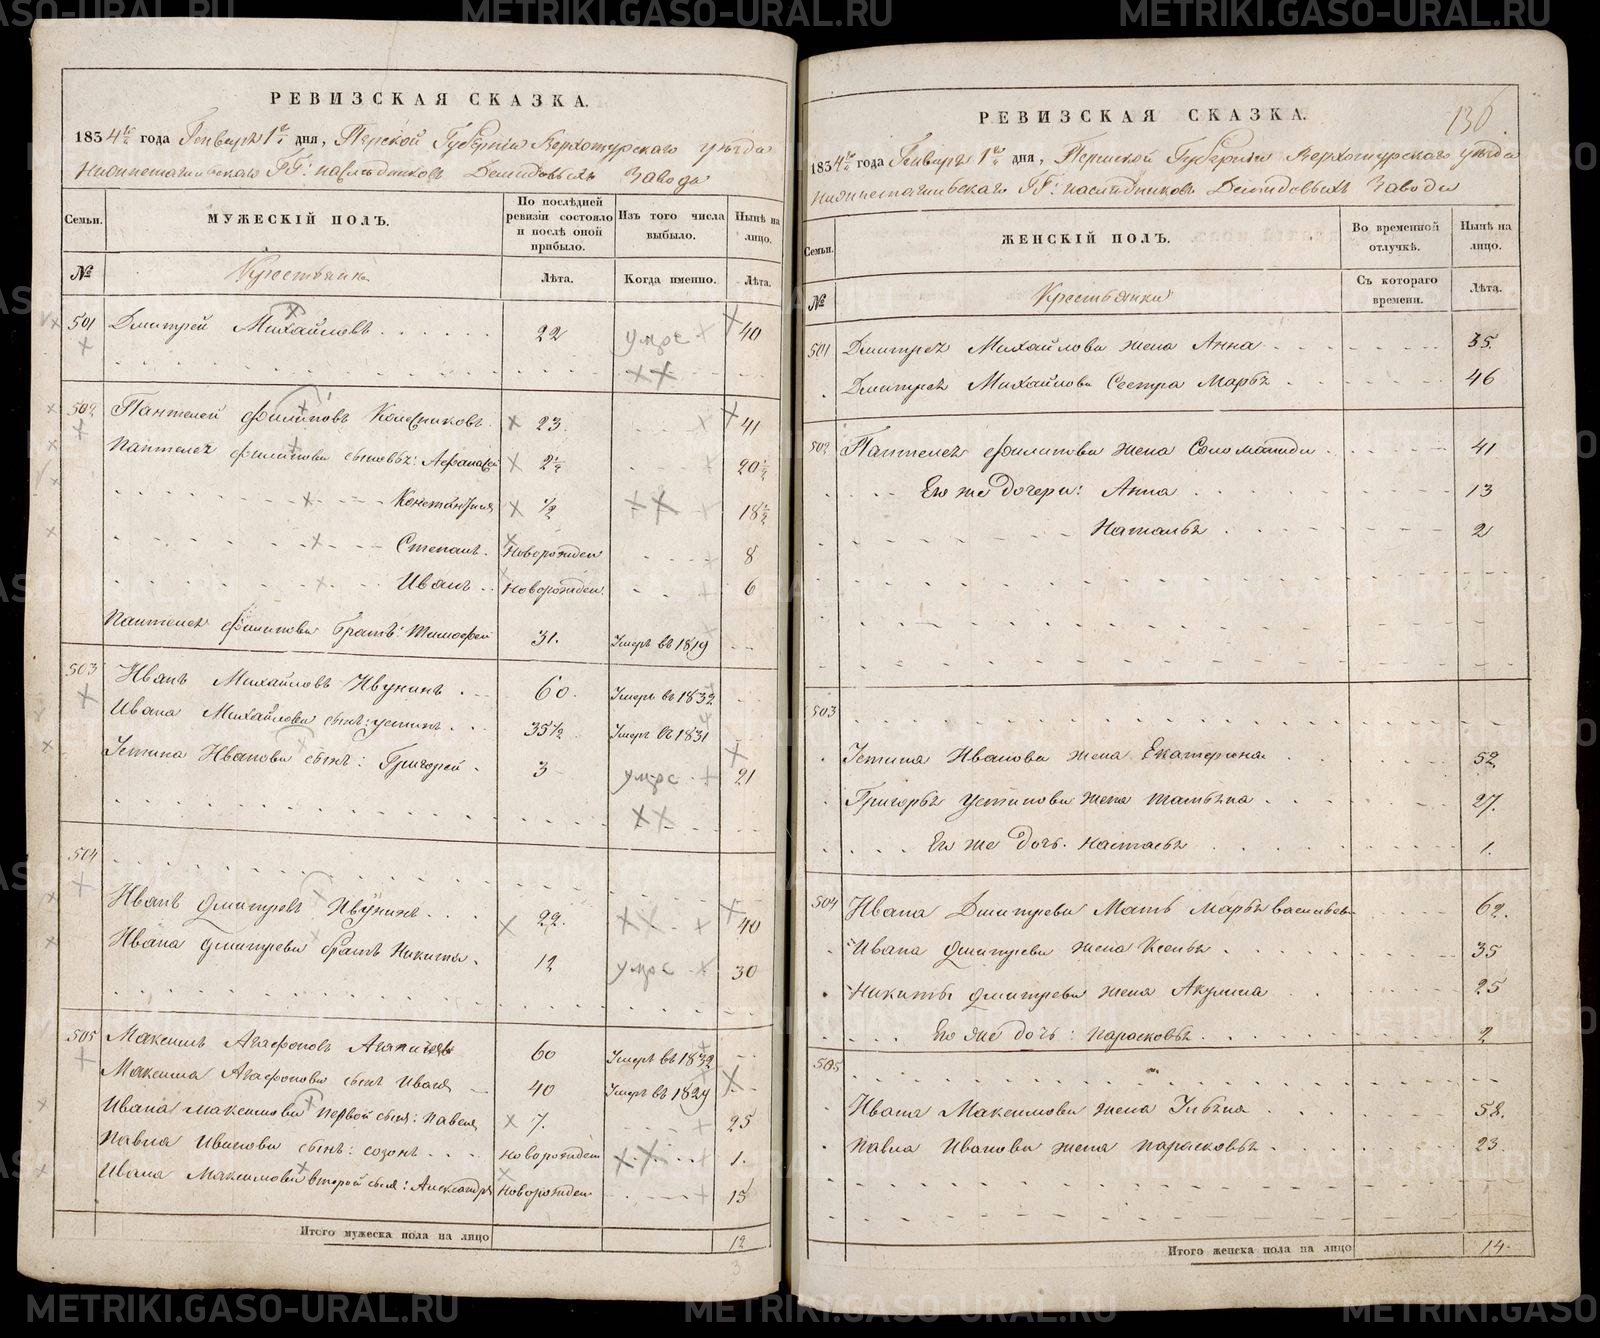 METRIKI.GASO-URAL.RU
РЕВИЗСКАЯ СКАЗКА.
1834го года Генваря 1го дня, Пермской Губерніи Верхотурскаго уѣзда
Нижнетагильскаго ГГ: наслѣдниковъ Демидовыхъ Завода
Семьи.
МУЖЕСКІЙ ПОЛЪ.
По послѣдней ревизіи состояло и послѣ оной прибыло.
Изъ того числа выбыло.
Нынѣ на лицо.
№
Крестьяне
Лѣта.
Когда именно.
Лѣта.
501 Дмитрей Михайловъ 22 умре 40
502 Пантелей Филиповъ Колесниковъ 23. 41
Пантелея Филипова сыновья: Афанасей 2½ 20½
Константинъ ½ 18½
Степанъ. Новорожден 8
Иванъ Новорожден. 6
Пантелея Филипова братъ: Тимофей 31. Умеръ въ 1819
503 Иванъ Михайловъ Ивунинъ 60. Умеръ въ 1832
Ивана Михайлова сынъ: устинъ 35½ Умеръ въ 1831
Устина Иванова сынъ: Григорей 3 умре 21
504
Иванъ Дмитревъ Ивунинъ 22. 40
Ивана Дмитрева братъ Никита. 12 умре 30
505 Максимъ Агафоновъ 60 Умеръ въ 1832
Максима Агафонова сынъ Иванъ 40 Умеръ въ 1829
Ивана Максимова первой сынъ: Павелъ 7. 25
Павла Иванова сынъ: созонъ Новорожден 1.
Ивана Максимова второй сынъ: Александръ Новорожден 15
Итого мужеска пола на лицо 12
3
136.
РЕВИЗСКАЯ СКАЗКА.
1834го года Генваря 1го дня, Пермской Губерніи Верхотурскаго уѣзда
Нижнетагильскаго ГГ: наслѣдниковъ Демидовыхъ Завода
Семьи.
ЖЕНСКІЙ ПОЛЪ.
Во временной отлучкѣ.
Нынѣ на лицо.
№
Крестьянки
Съ котораго времени.
Лѣта.
501 Дмитрея Михайлова жена Анна 35.
Дмитрея Михайлова Сестра Марья 46
502 Пантелея Филипова жена Соломанида 41
Его же дочери: Анна 13
Наталья 2
503
Устина Иванова жена Екатерина 52
Григорья Устинова жена Татьяна 27.
Его же дочь. Настасья 1.
504 Ивана Дмитрева Мать Марья васильева 62.
Ивана Дмитрева жена Ксенья 35
Никиты Дмитрева жена Акулина 25
Его же дочь: Парасковья 2
505
Ивана Максимова жена Ульяна 58.
Павла Иванова жена Парасковья 23.
Итого женска пола на лицо 14.
METRIKI.GASO-URAL.RU